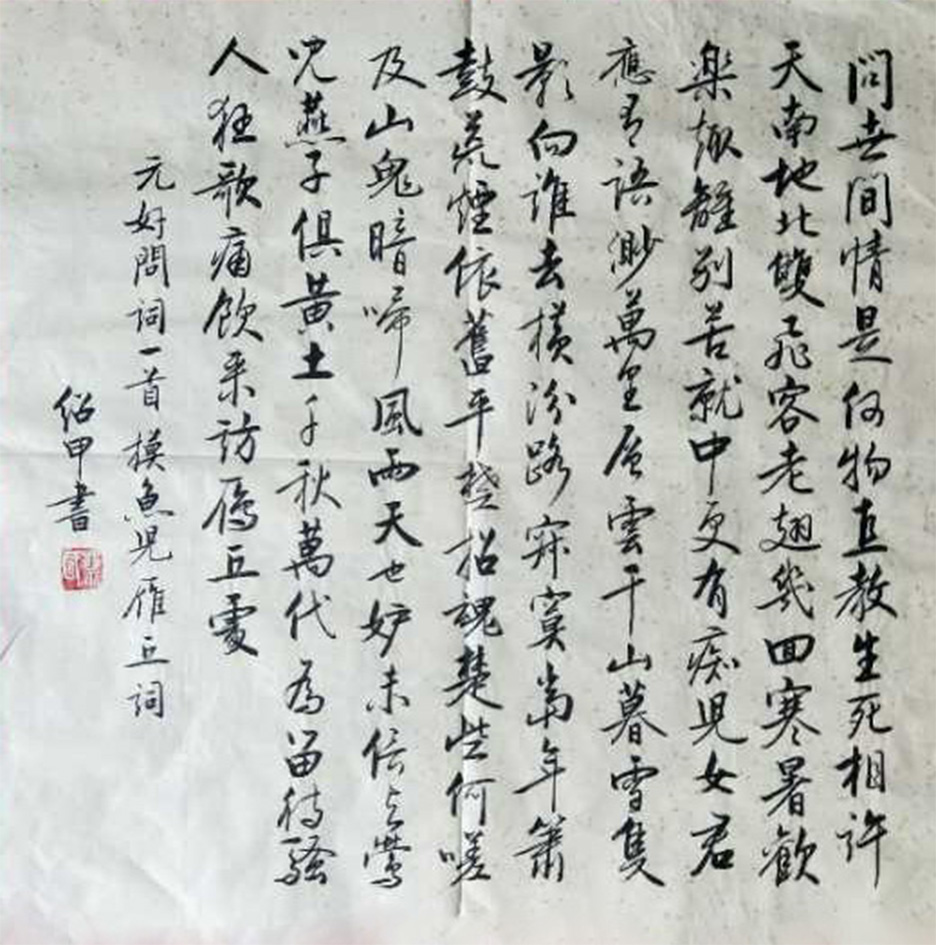 問世間情是何物直教生死相許
天南地北雙飛客老翅幾回寒暑歡
樂趣離別苦就中更有痴兒女君
應有語渺萬里層雲千山暮雪隻
影向誰去橫汾路寂寞當年簫
鼓荒煙依舊平楚招魂楚些何嗟
及山鬼暗啼風雨天也妒未信与鶯
兒燕子俱黃土千秋萬代為留待騷
人狂歌痛飲來訪鴈丘處
元好問詞一首摸魚兒雁丘詞
紹甲書